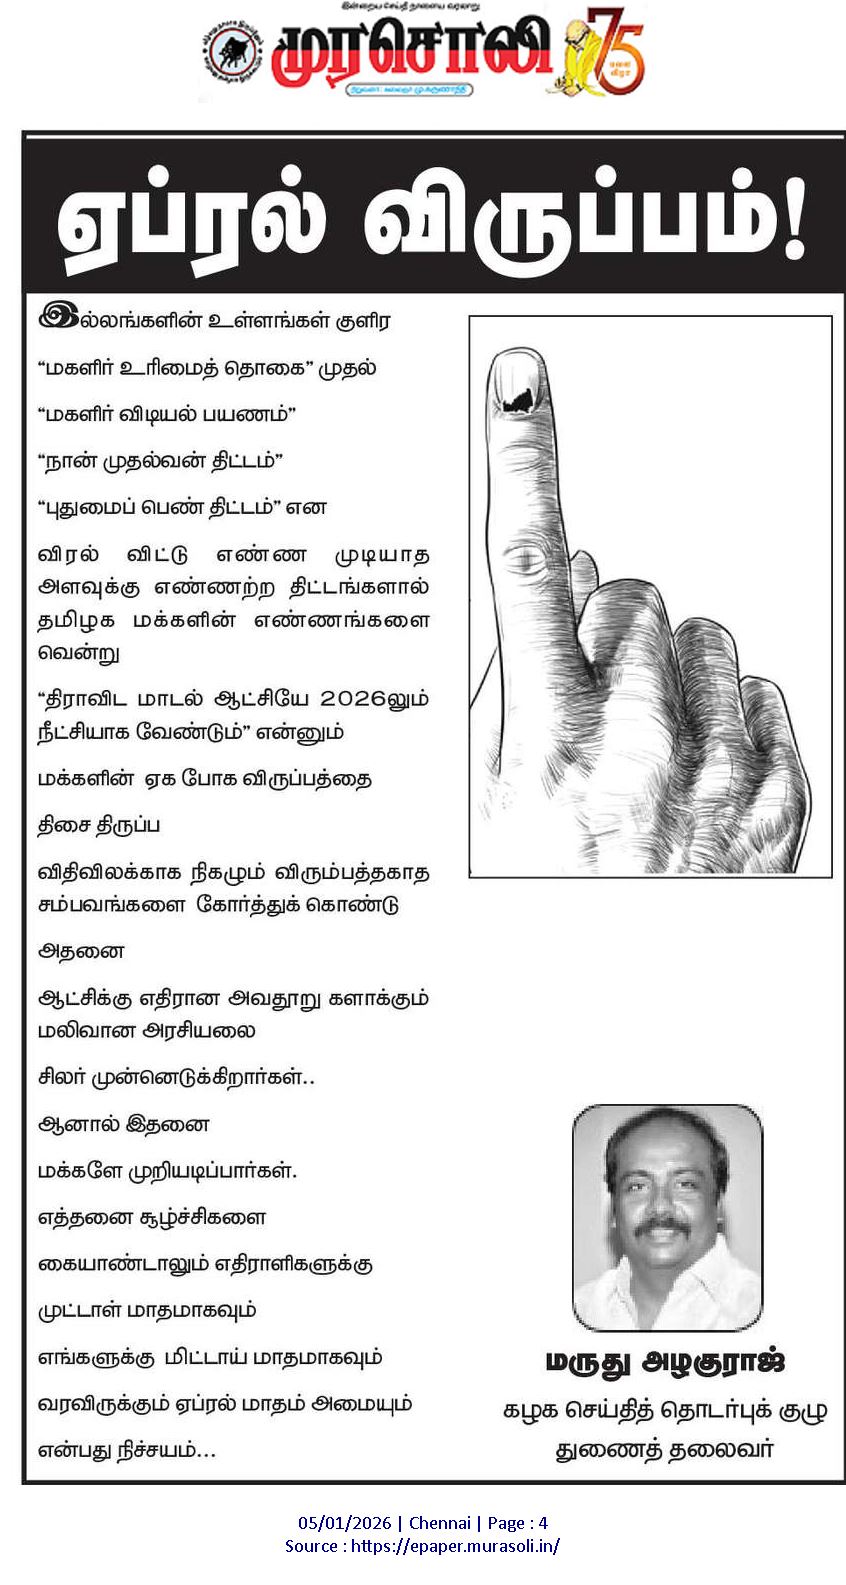 இன்றைய செய்தி நாளைய வரலாறு
முரசொலி
75
பவள விழா
நிறுவனர்: கலைஞர் மு.கருணாநிதி
ஏப்ரல் விருப்பம்!
இல்லங்களின் உள்ளங்கள் குளிர
“மகளிர் உரிமைத் தொகை” முதல்
“மகளிர் விடியல் பயணம்”
“நான் முதல்வன் திட்டம்”
“புதுமைப் பெண் திட்டம்” என
விரல் விட்டு எண்ண முடியாத
அளவுக்கு எண்ணற்ற திட்டங்களால்
தமிழக மக்களின் எண்ணங்களை
வென்று
“திராவிட மாடல் ஆட்சியே 2026லும்
நீட்சியாக வேண்டும்” என்னும்
மக்களின் ஏக போக விருப்பத்தை
திசை திருப்ப
விதிவிலக்காக நிகழும் விரும்பத்தகாத
சம்பவங்களை கோர்த்துக் கொண்டு
அதனை
ஆட்சிக்கு எதிரான அவதூறு களாக்கும்
மலிவான அரசியலை
சிலர் முன்னெடுக்கிறார்கள்..
ஆனால் இதனை
மக்களே முறியடிப்பார்கள்.
எத்தனை சூழ்ச்சிகளை
கையாண்டாலும் எதிராளிகளுக்கு
முட்டாள் மாதமாகவும்
எங்களுக்கு மிட்டாய் மாதமாகவும்
வரவிருக்கும் ஏப்ரல் மாதம் அமையும்
என்பது நிச்சயம்...
மருது அழகுராஜ்
கழக செய்தித் தொடர்புக் குழு
துணைத் தலைவர்
05/01/2026 | Chennai | Page : 4
Source : https://epaper.murasoli.in/